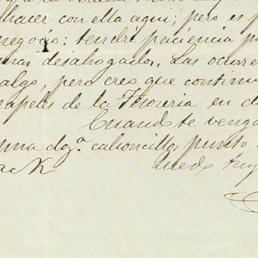 hacer con ella aqui; pero es p
negocio: tendré paciencia p
mas desahogado. Las ocurre
algo, pero creo que continu
papeles de la Tesoreria en d
Cuando te venga
una doz.ª calzoncillos punto
quedo tuy